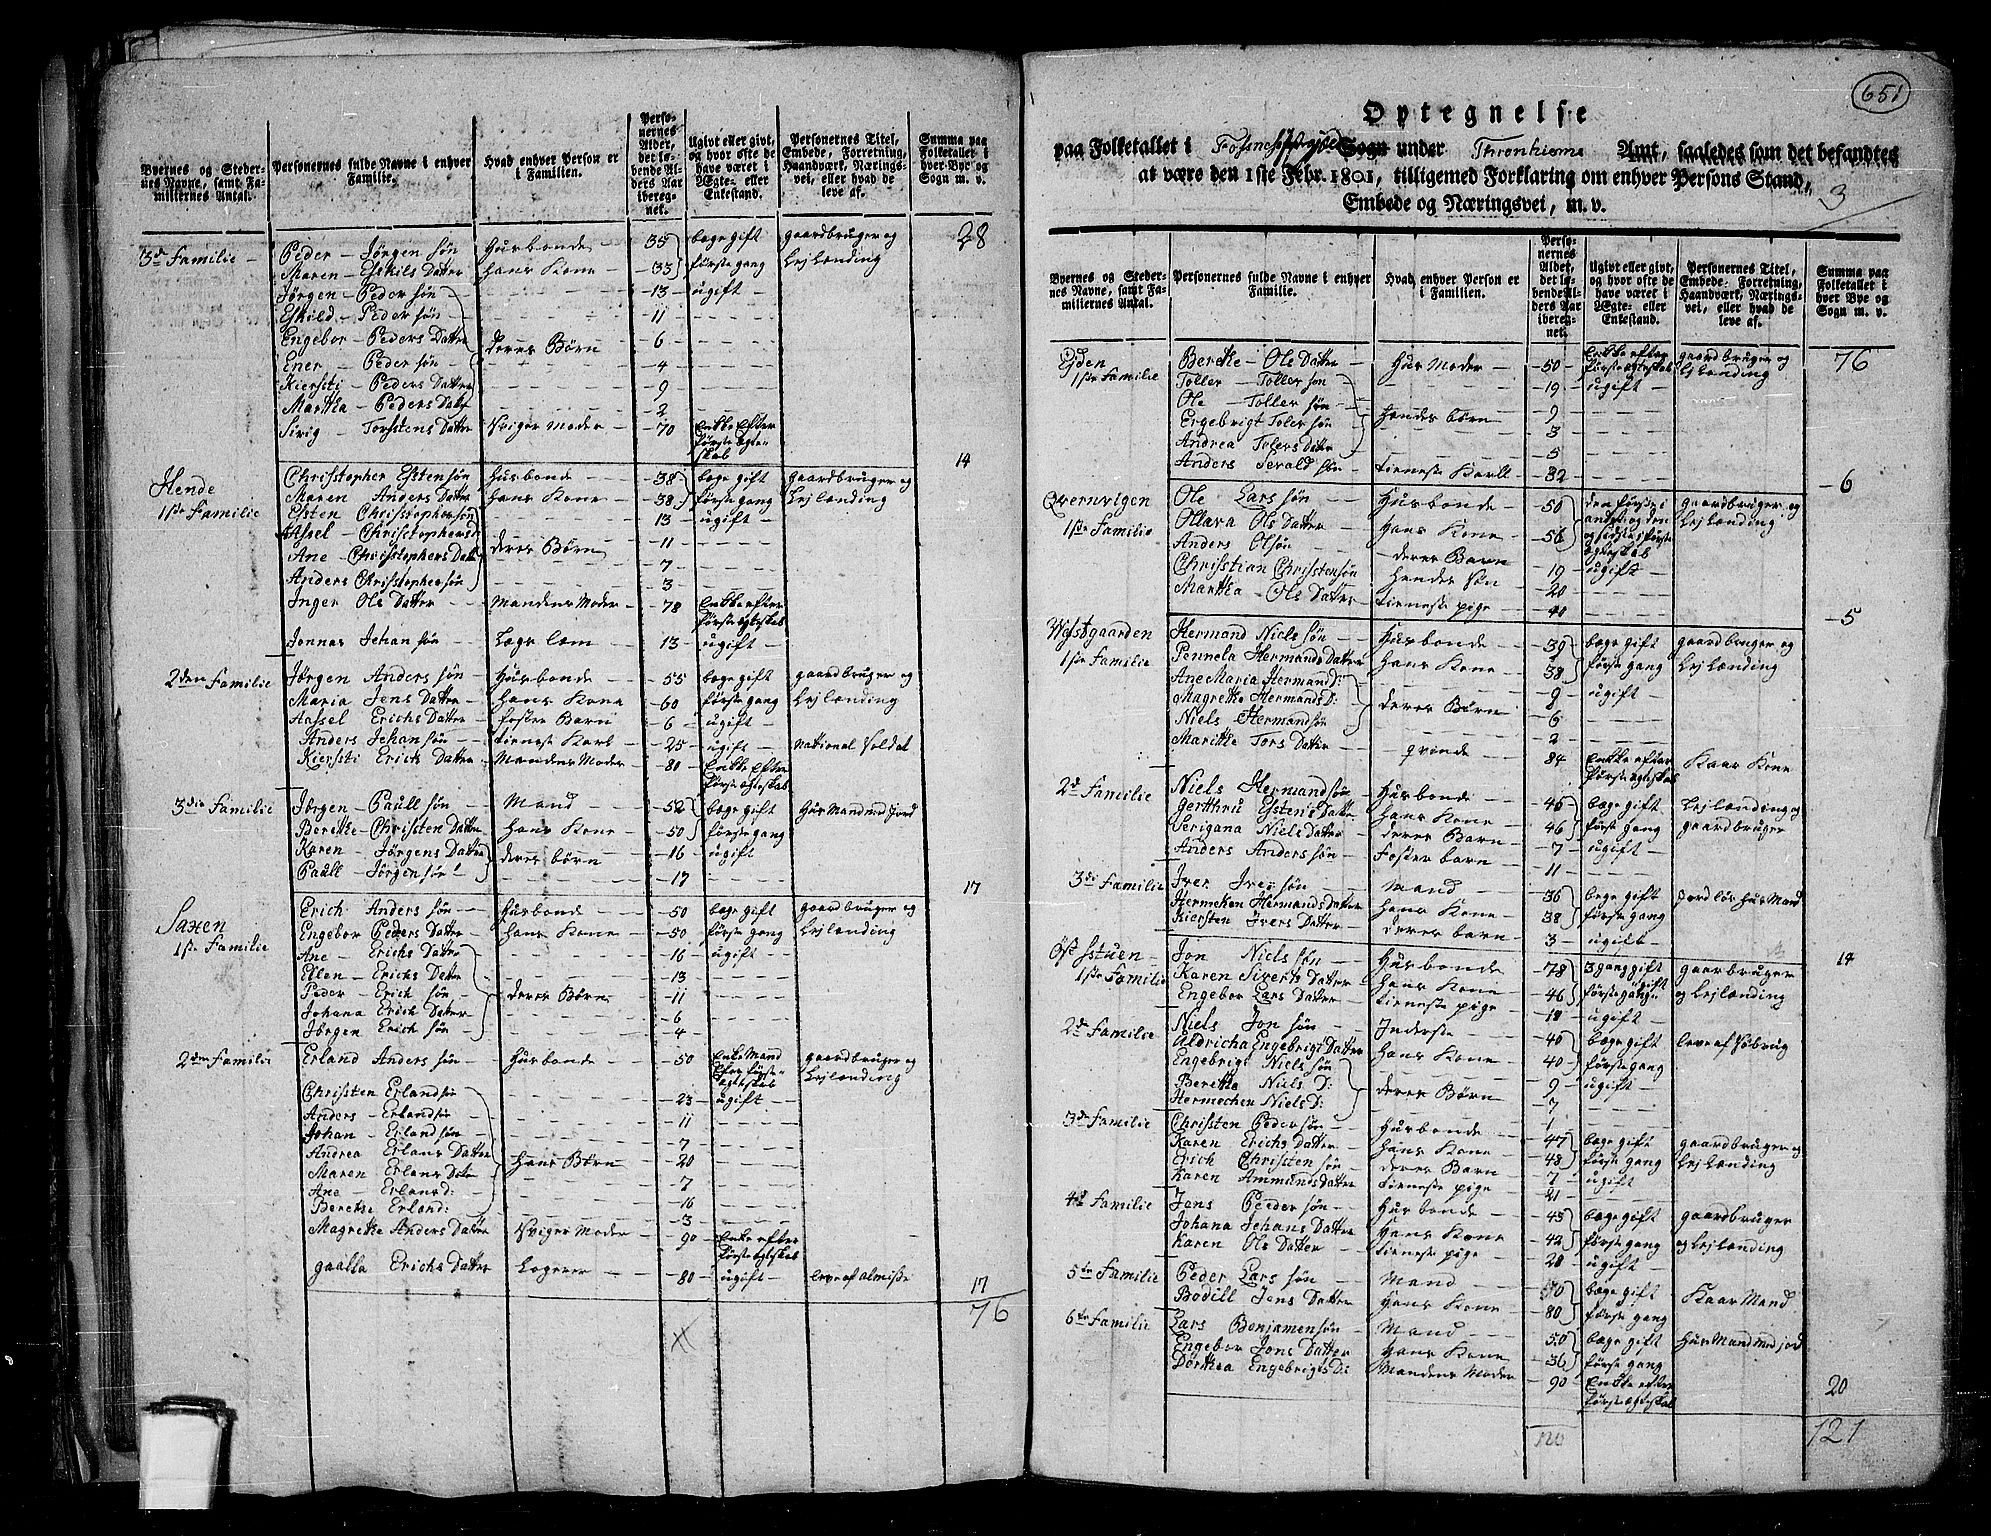 Byernes og Stedernes Navne, samt Familiernes Antal.
Personernes fulde Navne i enhver Familie.
Hvad enhver Person er i Familien.
Personernes Alder, det løbende Alders Aar iberegnet.
Ugivt eller givt, og hvor ofte de have været i Ægte- eller Enkestand.
Personernes Titel, Embede, Forretning, Haandværk, Næringsvei, eller hvad de leve af.
Summa paa Folketallet i hver Bye og Sogn m. v.
28
3de Familie Peder Jørgen søn Husbonde 35 bæge gift gaardbruger og
Maren Eskils Datter hans Kone 33 første gang Lejlænding
Jørgen Peder søn 13 ugift
Eskild Peder søn 11
Engebor Peders Datter deres Børn 6
Ener Peder søn 4
Kiersti Peders Datter 9
Martha Peders Datter 2
Sirig Torstens Datter Sviger Moder 70 Enkke Efter
første ægte-
skab
14
Hende Christopher Estensøn Husbonde 38 bæge gift gaardbruger og
1ste Familie Maren Anders Datter hans Kone 38 første gang Lejlænding
Esten Christophersøn 13 ugift
Assel Christophers D 11
Ane Christophers Datt deres Børn 7
Anders Christophersøn 3
Inger Ols Datter Mandens Moder 78 Enkke efter
første ægteskab
Jonnas Jehan søn Lægs læm 13 ugift
2den Familie Jørgen Anders søn Husbonde 55 bæge gift gaardbruger og
Maria Jens Datter hans Kone 60 første gang Lejlænding
Assel Erichs Datter foster Barn 6 ugift
Anders Jehan søn tieneste Karl 25 ugift National Soldat
Kiersti Erichs Datter Mandens Moder 80 Enkke Efter
første ægteskab
3die Familie Jørgen Paull søn Mand 52 bæge gift Hus Mand med Jord
Beretke Christen Datter hans Kone 50 første gang
Karen Jørgens Datter deres børn 16 ugift
Paull Jørgensøn 17
17
Saxen Erich Anders søn Husbonde 50 bæge gift gaardbruger og
1ste Familie Engebor Peders Datter hans Kone 50 første gang Lejlænding
Ane Erichs Datter 16 ugift
Ellen Erichs Datter 13
Peder Erich søn deres Børn 11
Johana Erich Datter 6
Jørgen Erich søn 4
2den Familie Erland Anders søn Husbonde 50 Enke Mand gaardbruger og
Efter første Lejlænding
ægteskab
Christen Erlandsøn 23 ugift
Anders Erlandsøn 11
Johan Erlandsøn 7
Andrea Erlans Datter hans Børn 20
Maren Erlans Dater 7
Ane Erlans d: 16
Beretke Erland: 3
Magretke Anders Datter Sviger Moder 90 Enke efter
første ægteskab
gaalla Erichs Datter Logerer 80 ugift leve af almisse
17
76
651
Optegnelse
paa Folketallet i Fosnes Sogn under Thronhiems Amt, saaledes som det befandtes
at være den 1ste Febr. 1801, tilligemed Forklaring om enhver Persons Stand,
Embede og Næringsvei, m. v.
3
Byernes og Stedernes Navne, samt Familiernes Antal.
Personernes fulde Navne i enhver Familie.
Hvad enhver Person er i Familien.
Personernes Alder, det løbende Alders Aar iberegnet.
Ugivt eller givt, og hvor ofte de have været i Ægte- eller Enkestand.
Personernes Titel, Embede, Forretning, Haandværk, Næringsvei, eller hvad de leve af.
Summa paa Folketallet i hver Bye og Sogn m. v.
76
Ejden Beretke Ols Datter Hus Moder 50 Enkke efter gaardbruger og
1ste Familie Toller Toller søn 19 første ægteskab Lejlænding
Ole Toller søn hendes børn 9 ugift
Engebrigt Toler søn 3
Andrea Tolers Datter 5
Anders Sevald søn tieneste Karll 32
6
Qvernvigen Ole Lars søn Husbonde 50 den første i gaardbruger og
1ste Familie Ollava Ols Datter Hans Kone 56 andet og den Lejlænding
Anders Olsøn deres Barn 19 ægteskab
Christian Christensøn hendes søn 20 ugift
Martha Ols Datter tieneste pige 40
5
Vestgaarden Hermand Niels søn Husbonde 39 bæge gift gaardbruger og
1ste Familie Pennela Hermands Datter hans Kone 38 første gang Lejlænding
Ane Maria Hermand D: 8 ugift
Magretke Hermands D: deres Børn 6
Niels Hermandsøn 2
Maritke Tors Datter qvinde 84 Enkke efter Kaar Kone
første ægteskab
2d Familie Niels Hermandsøn Husbonde 45 bæge gift Lejlænding og
Gertthru Estens Datter hans Kone 46 første gang gaardbruger
Serigana Niels Datter deres Barn 7 ugift
Anders Anders søn Foster barn 11
3di Familie Iver Iver søn Mand 36 bæge gift Jord løs hus Mand
Hermeken Hermands Datter hans Kone 38 første gang
Kiersten Ivers Datter deres barn 3 ugift
14
Øst Stuen Jon Niels søn Husbonde 78 3 gang gift gaardbruger
1ste Familie Karen Siverts Datter hans Kone 46 første gang gift og Lejlænding
Engebor Lars Datter tieneste pige 18 ugift
2de Familie Niels Jon søn Inderste 40 bæge gift leve af søbrug
Aldricha Engebrigt Datter hans Kone 40 første gang
Engebrigt Niels søn 9 ugift
Beretke Niels D: deres Børn 7
Hermechen Niels D: 1
3de Familie Christen Peder søn Husbonde 47 bæge gift gaardbruger og
Karen Erichs Datter hans Kone 48 første gang Lejlænding
Erich Christen søn deres Barn 7 ugift
Karen Ammunds Datter tieneste pige 21
4de Familie Jens Peeder søn Husbonde 43 bæge gift gaardbruger
Johana Jehans Datter hans Kone 42 første gang og Lejlænding
Karen Ols Datter tieneste pige 20 ugift
5te Familie Peder Lars søn Mand bæge gift Kaar Mand
Bodill Jens Datter hans Kone 80 første gang
6te Familie Lars Benjamensøn Mand 50 bæge gift Hus Mand med jord
Engebor Jons Datter hans Kone 36 første gang
Dorthea Engebrigts D: Mandens Moder 90 Enkke efter
første ægteskab
20
120 121